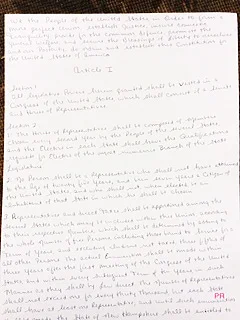 We the People of the United States in Order to form a
more perfect Union, establish Justice, insure domestic
Tranquility, provide for the common defence, promote the
general Welfare, and secure the Blessings of Liberty to ourselves
and our Posterity, do ordain and establish this Constitution for
the United States of America
Article I
Section 1
All legislative Powers herein granted shall be vested in a
Congress of the United States which shall consist of a Senate
and House of Representatives
Section 2
1 The House of Representatives shall be composed of
chosen every second Year by the People of the several States
and the Electors in each State shall have the Qualifications
requisite for Electors of the most numerous Branch of the State
Legislature
2 No Person shall be a Representative who shall not have attained
to the Age of twenty five Years, and been seven Years a Citizen of
the United States and who shall not, when elected, be an
Inhabitant of that State in which he shall be chosen
3 Representatives and direct Taxes shall be apportioned among the
several States which may be included within this Union, according
to their respective Numbers, which shall be determined by adding to
the whole Number of free Persons including those bound to Service for a
Term of Years, and excluding Indians not taxed, three fifths of
all other Persons The actual Enumeration shall be made within
three Years after the first Meeting of the Congress of the United
States, and within every subsequent Term of ten Years in such
Manner as they shall by law direct The Number of Representatives
shall not exceed one for every thirty Thousand but each State
shall have at least one Representative, and until such enumeration
shall be made, the State of New Hampshire shall be entitled to
PR